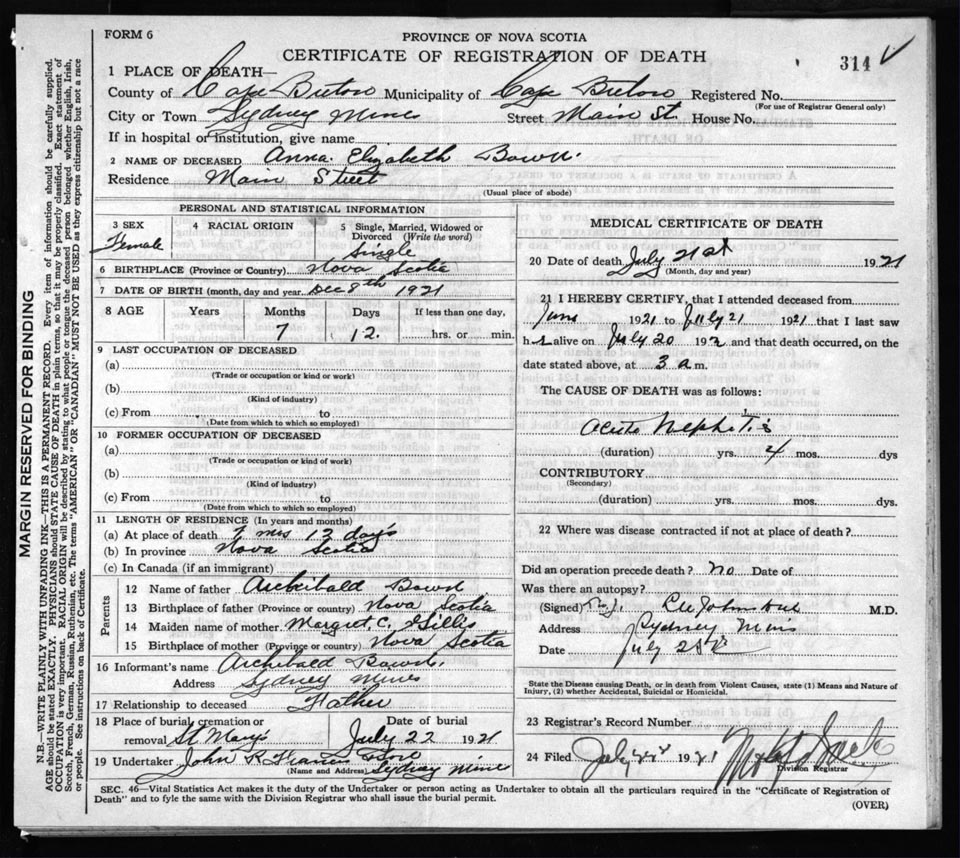 FORM 6
PROVINCE OF NOVA SCOTIA
CERTIFICATE OF REGISTRATION OF DEATH
314
1 PLACE OF DEATH—
County of Cape Breton Municipality of Cape Breton Registered No.
(For use of Registrar General only)
City or Town Sydney Mines Street Main St. House No.
If in hospital or institution, give name
2 NAME OF DECEASED Anna Elizabeth Bown.
Residence Main Street
(Usual place of abode)
PERSONAL AND STATISTICAL INFORMATION
3 SEX 4 RACIAL ORIGIN 5 Single, Married, Widowed or
Divorced (Write the word)
Female Single
6 BIRTHPLACE (Province or Country) Nova Scotia
7 DATE OF BIRTH (month, day and year) Dec 8th 1921
8 AGE Years Months Days If less than one day,
7 12. hrs. or min.
9 LAST OCCUPATION OF DECEASED
(a)
(Trade or occupation or kind or work)
(b)
(Kind of industry)
(c) From to
(Date from which to which so employed)
10 FORMER OCCUPATION OF DECEASED
(a)
(Trade or occupation or kind of work)
(b)
(Kind of industry)
(c) From to
(Date from which to which so employed)
11 LENGTH OF RESIDENCE (In years and months)
(a) At place of death 7 mos 12 days
(b) In province Nova Scotia
(c) In Canada (if an immigrant)
Parents
12 Name of father Archibald Bown
13 Birthplace of father (Province or country) Nova Scotia
14 Maiden name of mother Margret C. Gillis
15 Birthplace of mother (Province or country) Nova Scotia
16 Informant's name Archibald Bown.
Address Sydney Mines
17 Relationship to deceased Father
18 Place of burial, cremation or Date of burial
removal St Mary's July 22 1921
19 Undertaker John R Francis
(Name and Address) Sydney Mines
MEDICAL CERTIFICATE OF DEATH
20 Date of death July 21st 1921
(Month, day and year)
21 I HEREBY CERTIFY, that I attended deceased from
June 1921 to July 21 1921 that I last saw
h alive on July 20 192 and that death occurred, on the
date stated above, at 3 a m.
The CAUSE OF DEATH was as follows:
Acute Nephritis
(duration) yrs. mos. dys
CONTRIBUTORY
(Secondary)
(duration) yrs. mos. dys.
22 Where was disease contracted if not at place of death?
Did an operation precede death? no Date of
Was there an autopsy?
(Signed) M.D.
Address Sydney Mines
Date July
State the Disease causing Death, or in death from Violent Causes, state (1) Means and Nature of
Injury, (2) whether Accidental, Suicidal or Homicidal.
23 Registrar's Record Number
24 Filed July 1921
Division Registrar
SEC. 46—Vital Statistics Act makes it the duty of the Undertaker or person acting as Undertaker to obtain all the particulars required in the "Certificate of Registration of
Death" and to fyle the same with the Division Registrar who shall issue the burial permit.
(OVER)
MARGIN RESERVED FOR BINDING
N.B.—WRITE PLAINLY WITH UNFADING INK—THIS IS A PERMANENT RECORD. Every item of information should be carefully supplied.
AGE should be stated EXACTLY. PHYSICIANS should STATE CAUSE OF DEATH in plain terms, so that it may be properly classified. Exact statement of
OCCUPATION is very important. RACIAL ORIGIN will be described by stating to what people or tongue the deceased person belonged, whether English, Irish,
Scotch, French, German, Russian, Ruthenian, etc. The terms "AMERICAN" OR "CANADIAN" MUST NOT BE USED as they express citizenship but not a race
or people. See instructions on back of Certificate.